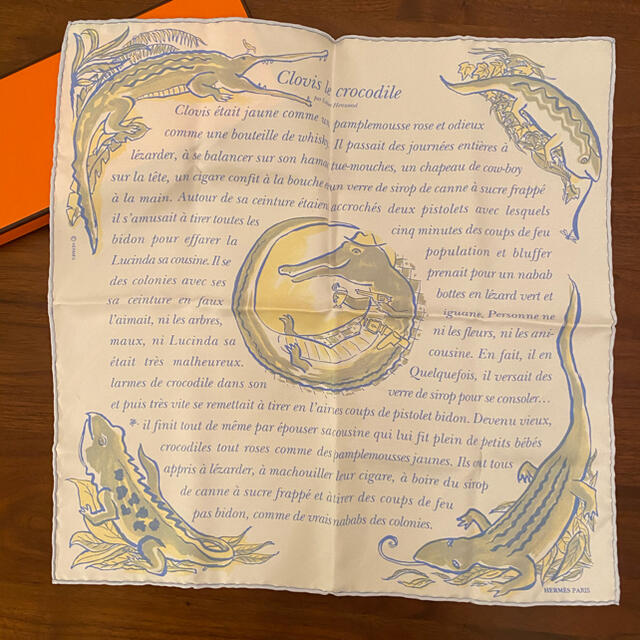 Clovis le crocodile
par Hermond
Clovis était jaune comme un pamplemousse rose et odieux
comme une bouteille de whisky. Il passait des journées entières à
lézarder, à se balancer sur son hamac que-mouches, un chapeau de cow-boy
sur la tête, un cigare confit à la bouche un verre de sirop de canne à sucre frappé
à la main. Autour de sa ceinture étaient accrochés deux pistolets avec lesquels
il s'amusait à tirer toutes les cinq minutes des coups de feu
bidon pour effarer la population et bluffer
Lucinda sa cousine. Il se prenait pour un nabab
des colonies avec ses bottes en lézard vert et
sa ceinture en faux iguane. Personne ne
l'aimait, ni les arbres, ni les fleurs, ni les ani-
maux, ni Lucinda sa cousine. En fait, il en
était très malheureux. Quelquefois, il versait des
larmes de crocodile dans son verre de sirop pour se consoler...
et puis très vite se remettait à tirer en l'air ses coups de pistolet bidon. Devenu vieux,
il finit tout de même par épouser sa cousine qui lui fit plein de petits bébés
crocodiles tout roses comme des pamplemousses jaunes. Ils ont tous
appris à lézarder, à machouiller leur cigare, à boire du sirop
de canne à sucre frappé et à tirer des coups de feu
pas bidon, comme de vrais nababs des colonies.
© HERMÈS
HERMÈS PARIS